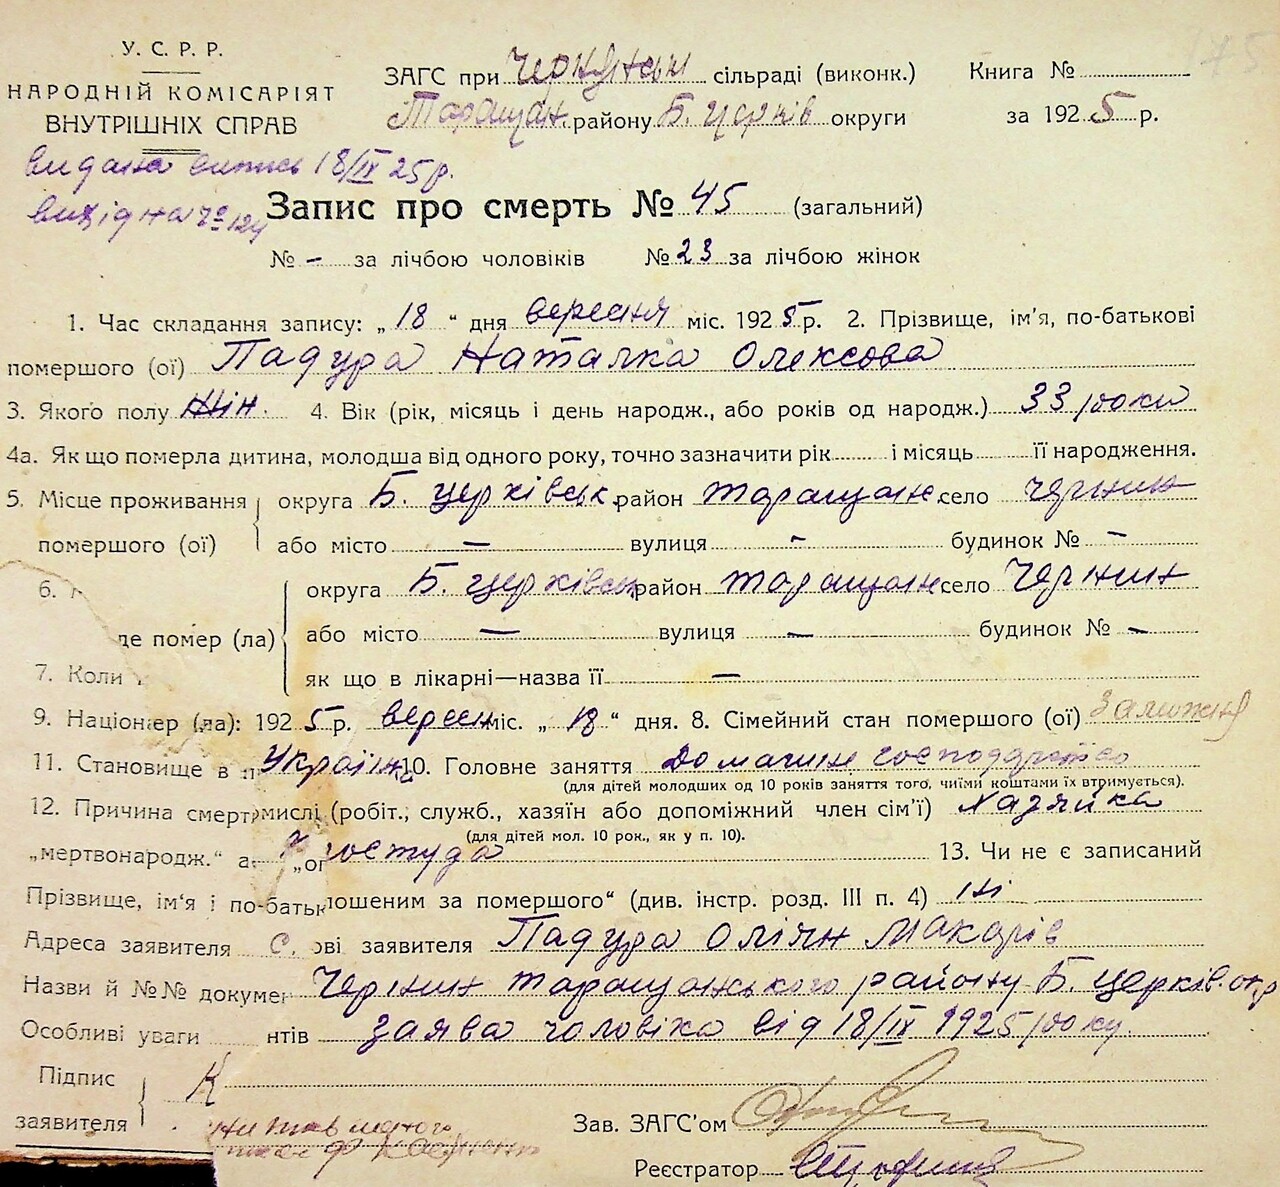 У. С. Р. Р.
НАРОДНІЙ КОМІСАРІЯТ
ВНУТРІШНІХ СПРАВ
видана випись 18/IX 25 р.
вихідна № 124
175
ЗАГС при сільраді (виконк.)
Таращан. району Б. Церків округи
Книга №
за 1925 р.
Запис про смерть № 45 (загальний)
№ – за лічбою чоловіків № 23 за лічбою жінок
1. Час складання запису: „18“ дня вересня міс. 1925 р. 2. Прізвище, ім'я, по-батькові
помершого (ої) Падура Наталка Олексова
3. Якого полу жін. 4. Вік (рік, місяць і день народж., або років од народж.) 33 роки
4а. Як що померла дитина, молодша від одного року, точно зазначити рік і місяць її народження.
5. Місце проживання округа Б. Церківськ. район Таращан. село Чернин
помершого (ої) або місто — вулиця - будинок № –
6. округа Б. Церківськ район Таращан. село Чернин
де помер (ла) або місто — вулиця — будинок № –
7. Коли як що в лікарні—назва її —
9. Націон ер (ла): 1925 р. вересн міс. „18“ дня. 8. Сімейний стан помершого (ої) Заміжня
11. Становище в Україн. 10. Головне заняття Домашнє господарство
(для дітей молодших од 10 років заняття того, чиїми коштами їх втримується).
12. Причина смерт мислі (робіт., служб., хазяїн або допоміжний член сім'ї) Хазяйка
(для дітей мол. 10 рок., як у п. 10).
„мертвонародж.“ а „ог простуда 13. Чи не є записаний
Прізвище, ім'я і по-батьк лошеним за помершого“ (див. інстр. розд. III п. 4) ні
Адреса заявителя С. ові заявителя Падура Оліян Макарів
Назви й №№ докумен Чернин Таращанського району Б. Церків. окр
Особливі уваги нтів заява чоловіка від 18/IX 1925 року.
Підпис
заявителя
Зав. ЗАГС'ом
Реєстратор